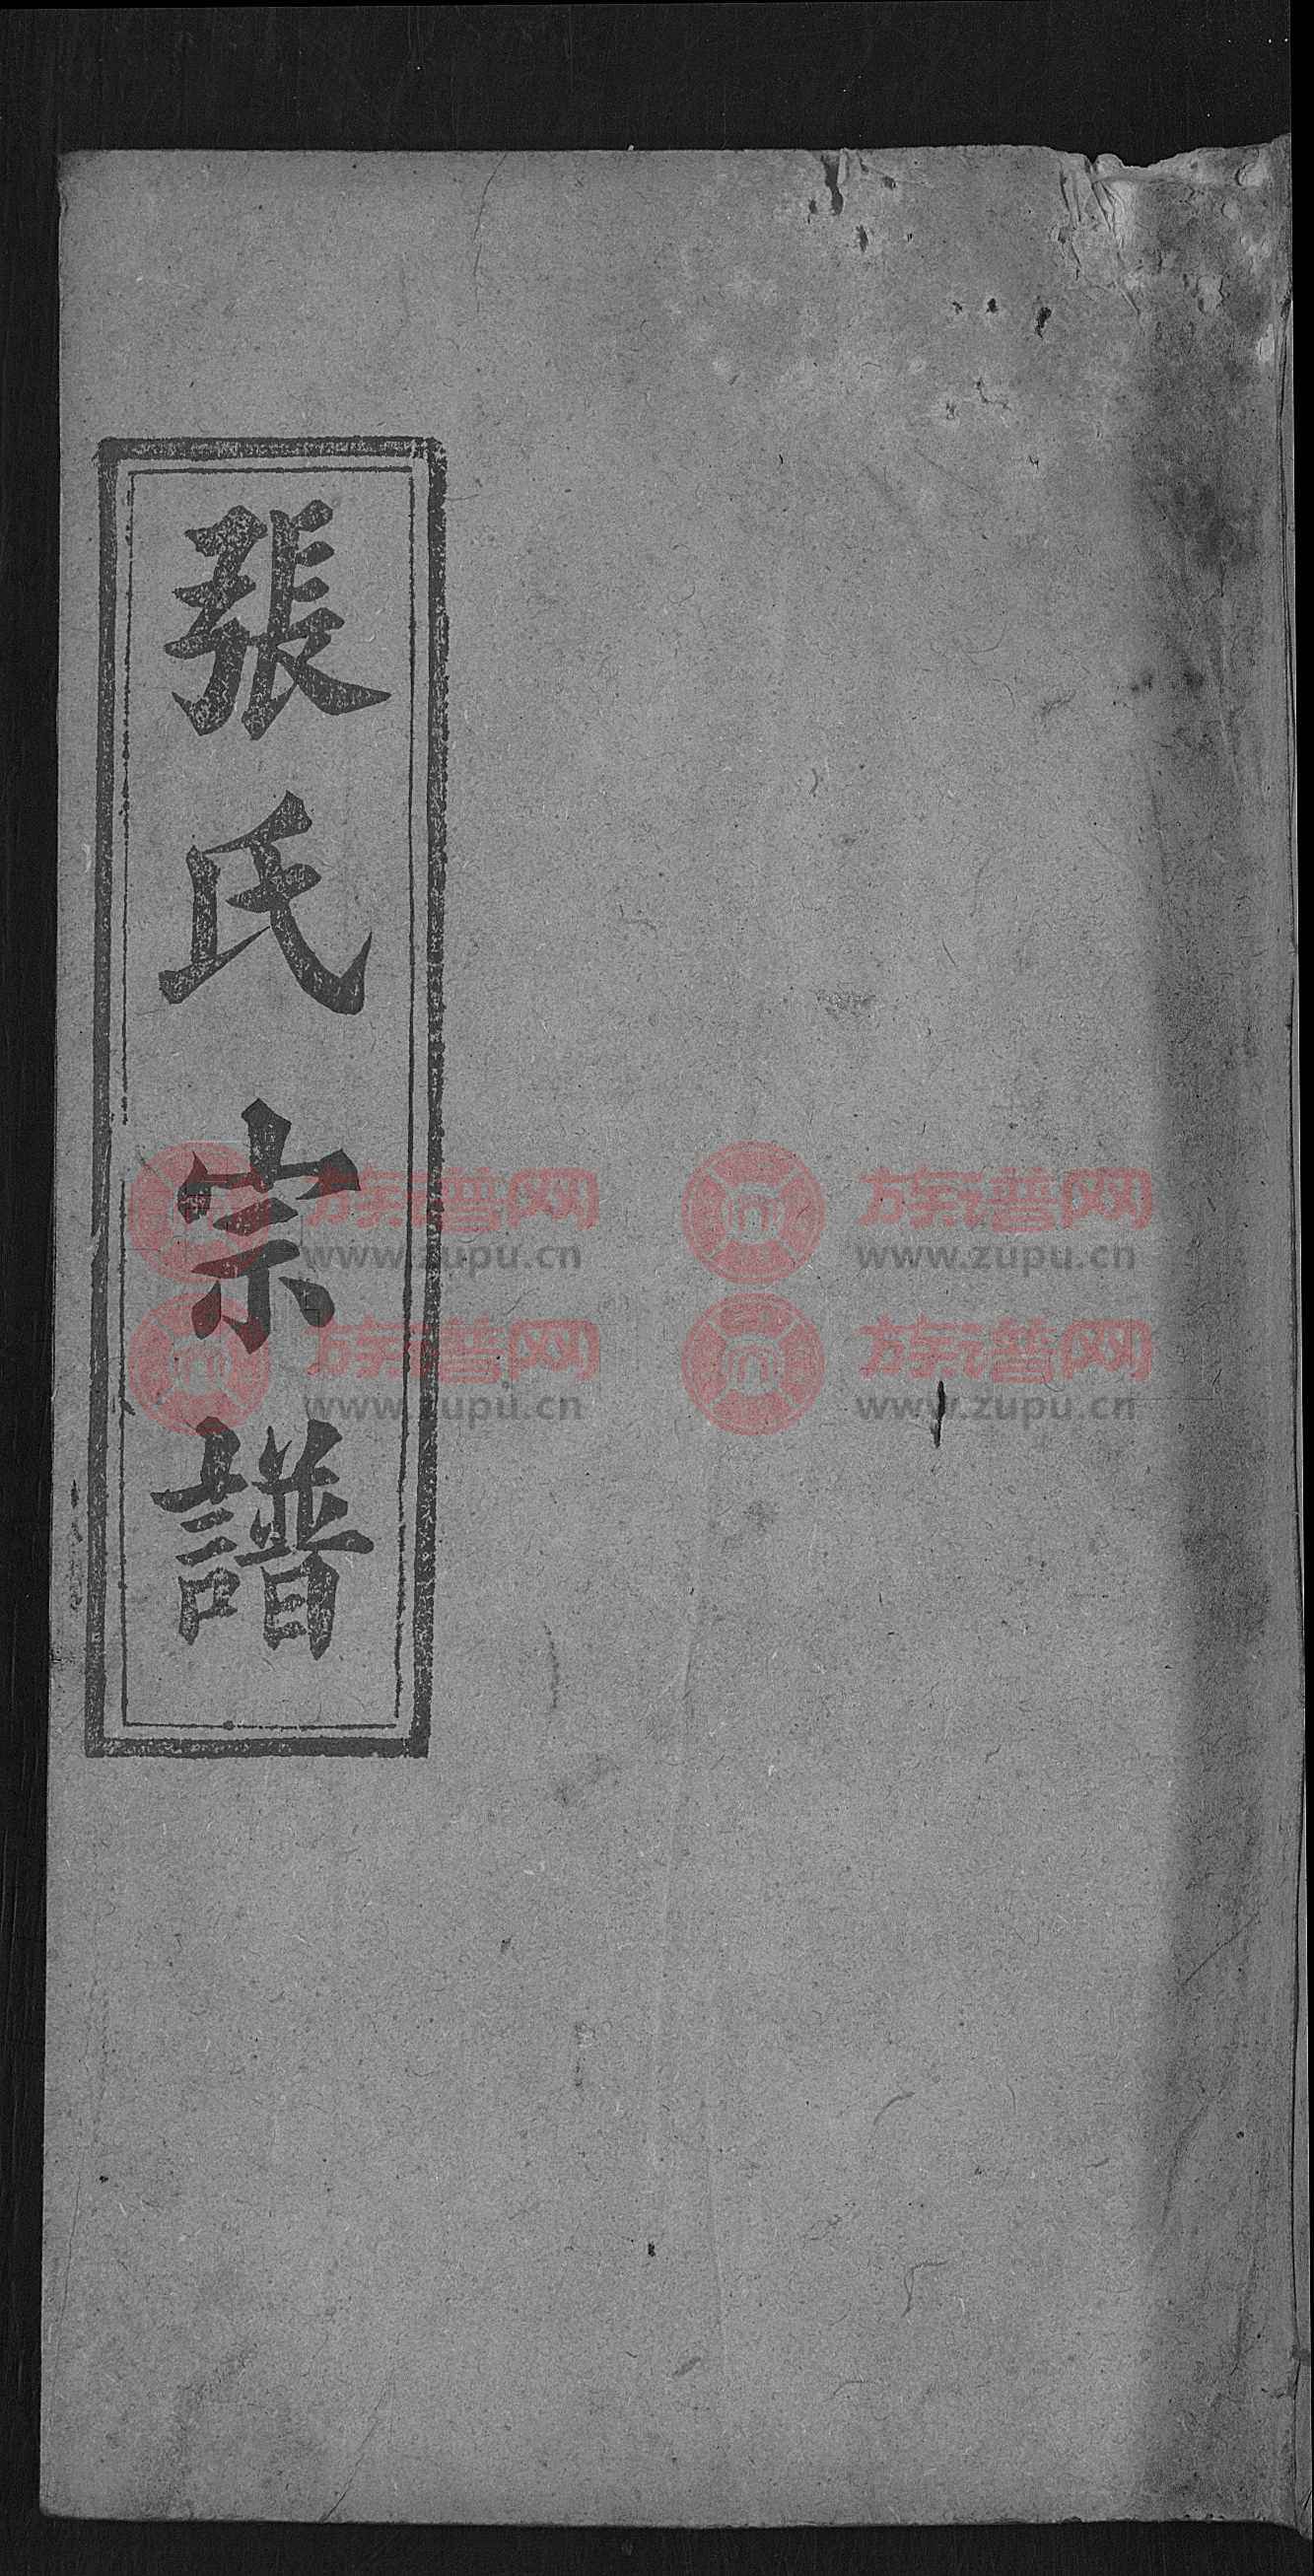 張氏宗譜
族谱网
www.zupu.cn
族谱网
www.zupu.cn
族谱网
www.zupu.cn
族谱网
www.zupu.cn